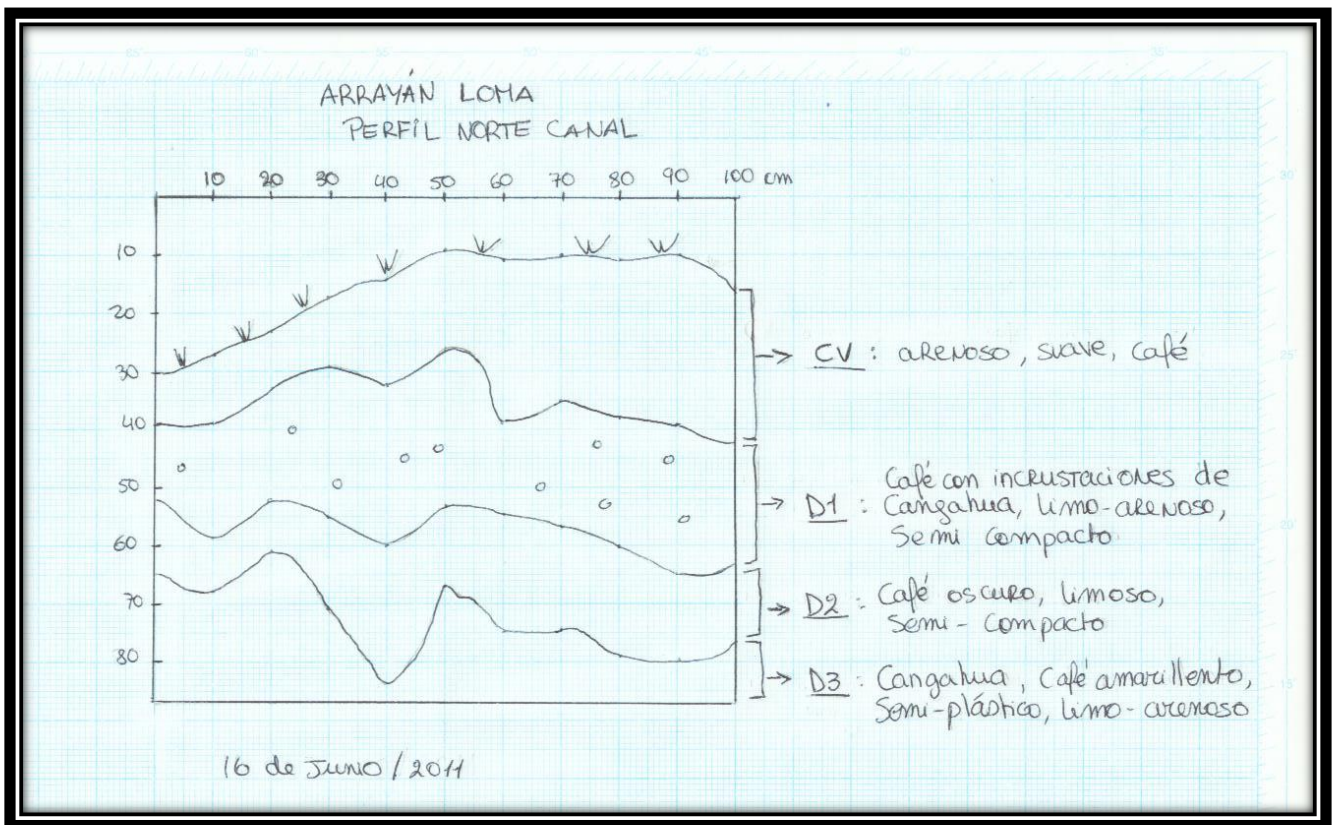 ARRAYÁN LOMA
PERFIL NORTE CANAL
10 20 30 40 50 60 70 80 90 100 cm
10
20
30
40
50
60
70
80
CV : arenoso, suave, café
Café con incrustaciones de
D1 : Cangahua, limo-arenoso,
Semi compacto
D2 : Café oscuro, limoso,
Semi-compacto
D3 : Cangahua, Café amarillento,
Semi-plástico, limo-arenoso
16 de Junio / 2011